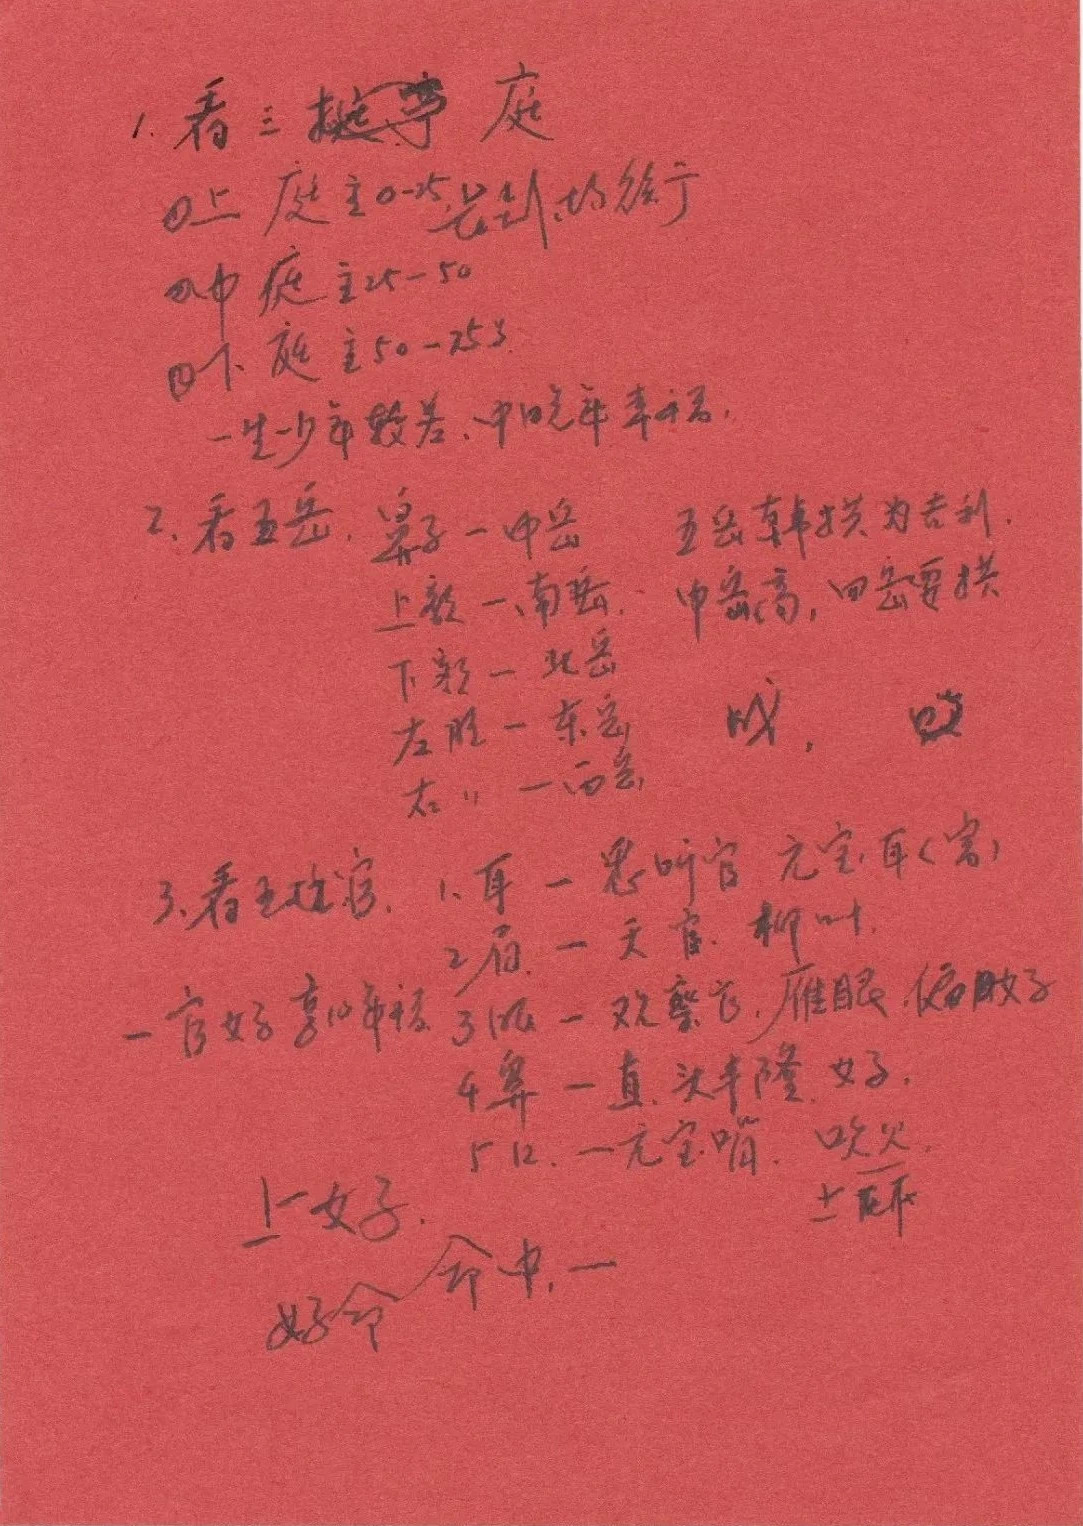 1. 看三庭
①上庭主0-25
②中庭主25-50
③下庭主50-75岁
一生少年较苦、中晚年幸福.
2. 看五岳. 鼻子一中岳 五岳朝拱为吉利.
上额一南岳. 中岳高, 四岳要拱
下额一北岳
左脸一东岳
右〃一西岳
3. 看五官. 1. 耳一 听官 元宝耳
2眉. 一 天官. 柳叶.
一官好享10年福 3眼一观察官. 雁眼.
4鼻一直. 头丰隆 好.
5口. 一元宝嘴. 吹火.
上好.
命中.一
好命